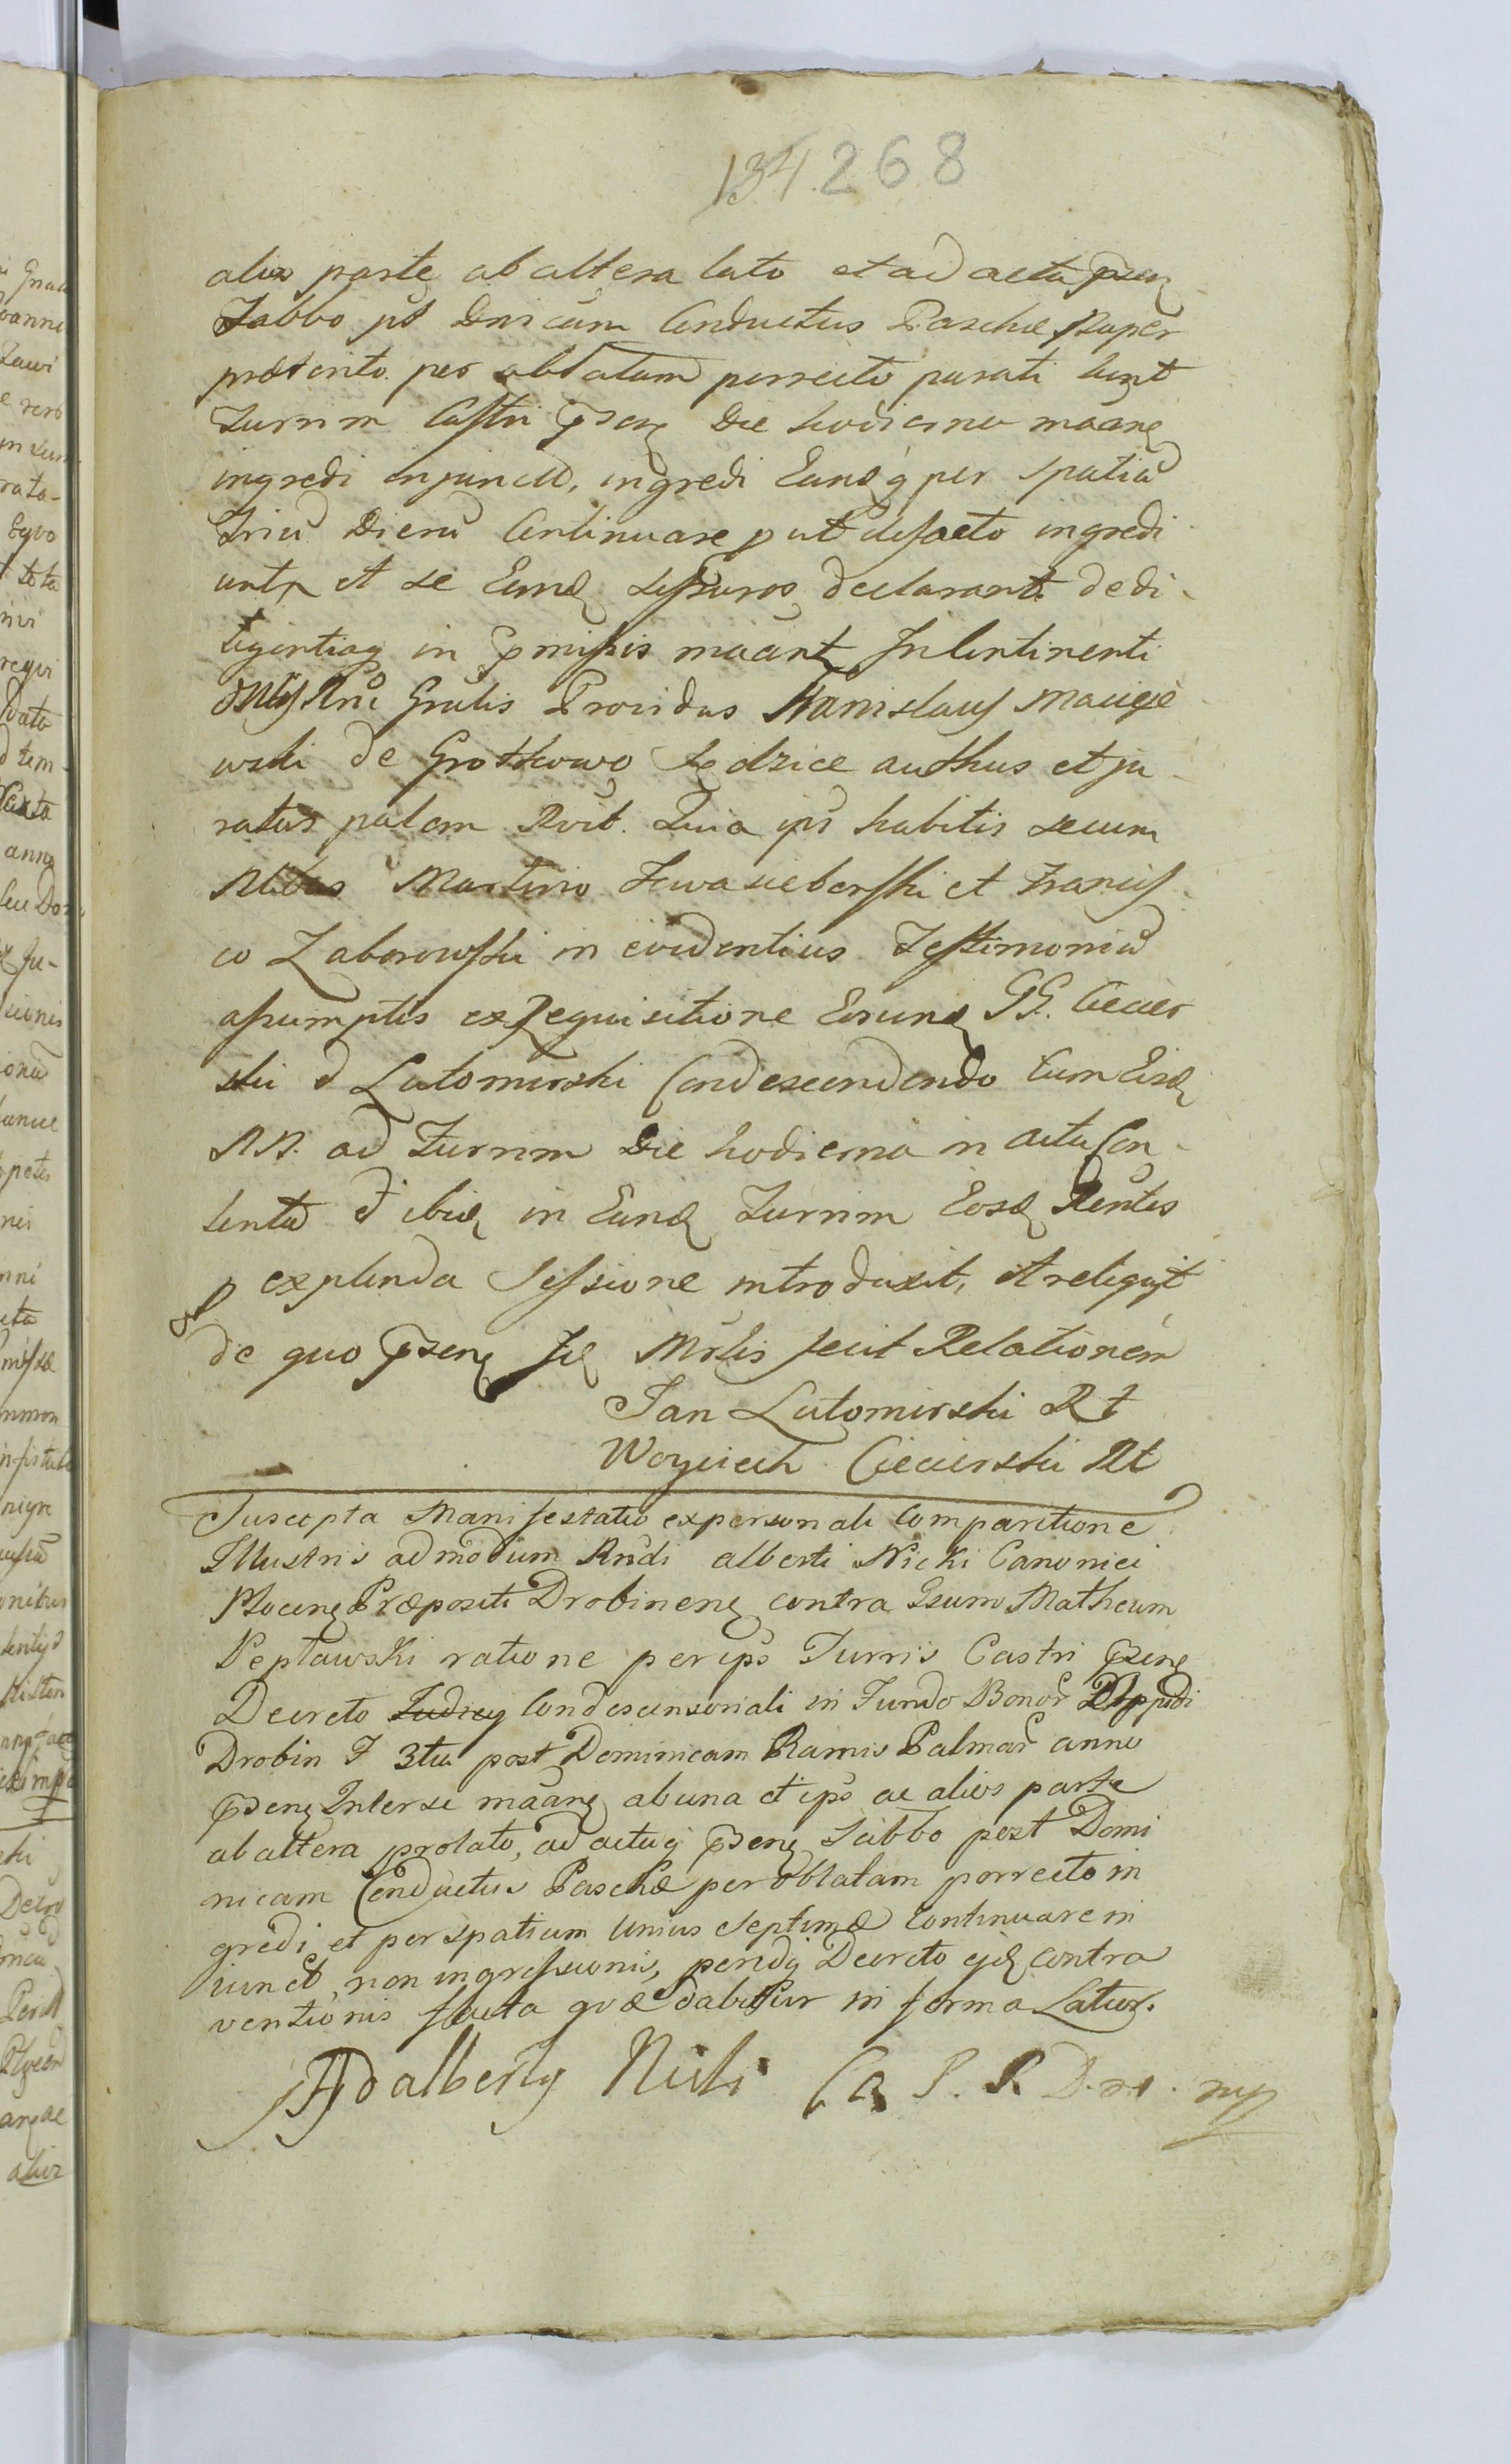 134 268
alia parte ab altera lato et ad acta psen
Sabbo pt Dnicam Conductus Paschæ nuper
præterito per oblatam porrecto parati sunt
Turrim Castri psen Die hodierna maane
ingredi injunctã, ingredi Eandq per spatiũ
Triũ Dierũ Continuare put defacto ingredi
untr et se Eand sessuros declarant de di-
ligentiaq in pmissis maant Incontinenti
Mistri Gralis Providus Stanislaus Macieje
wski de Grotkowo Sędzice authus et ju
ratus palam Rvit. Quia ips habitis secum
Nlibus Martino Zawa et Francis
co Zaborowski in evidentius Testimoniũ
assumptis ex Requisitione Eorund GG. Ciecier
ski & Lutomirski Condescendendo cum Eisd
NN. ad Turrim Die hodierna in actu Con-
tentã & ibid in Eand Turrim Eosd Rentes
p explenda Sessione introduxit, et reliquit
de quo psens Mrlis fecit Relationem
Jan Lutomirski Rt
Woyciech Ciecierski Rt
Suscepta Manifestatio expersonali Comparitione
Illustris admodum Rndi alberti Nicki Canonici
Plocens Præpositi Drobinens contra Gsum Matheum
Peptawski ratione per ips Turris Castri psens
Decreto Judicy Condescensoriali in Fundo Bonor Oppidi
Drobin F 3tia post Dominicam Ramis Palmar anno
psens Interse maans abuna et ips ac alios parte
ab altera prolato, ad actaq psens Sabbo post Domi
nicam Conductus Paschæ per oblatam porrecto in
gredi et per spatium Unius Septimæ Continuare in
iunctæ, non ingressionis, perindq Decreto ejd contra
ventionis facta quæ dabitur in forma Latior.
Adalbertg Nicki Ca P. P. D. m. mp